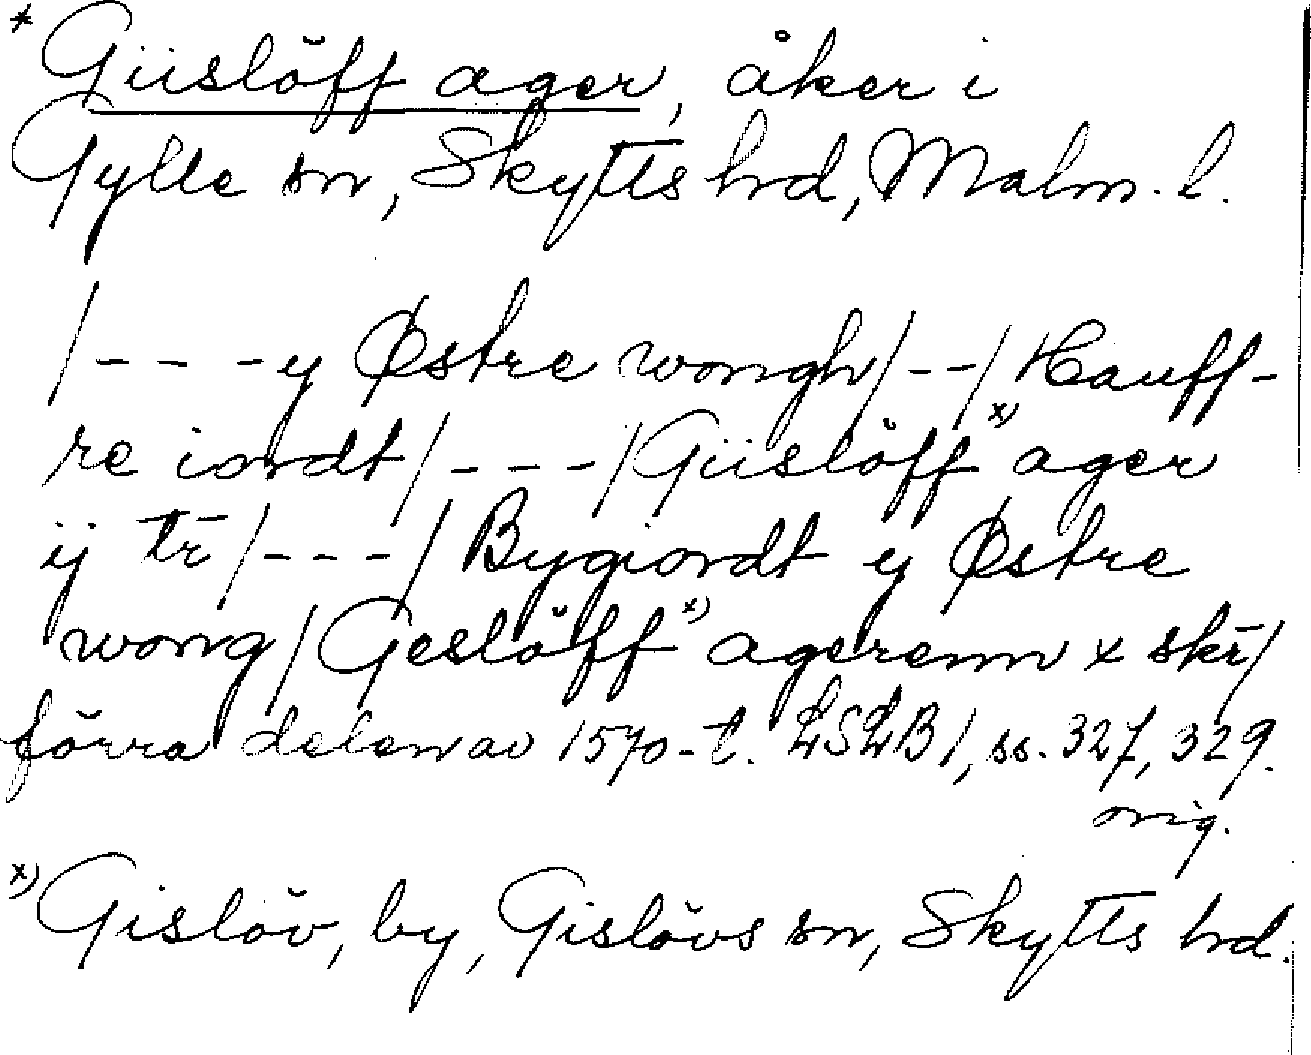 * Giislöff ager, åker i
Gylle sn, Skytts hrd, Malm. l.
/- - - y Østre wongh/- -/ Hauff-
re iordt/- - -/ Giislöff x) ager
ij tr̄/- - -/ Bygiordt y Østre
wong/ Geslöff x) agerenn x skr̄/
förra delen av 1570-t. LSLB 1, ss. 327, 329.
orig.
x) Gislöv, by, Gislövs sn, Skytts hrd.